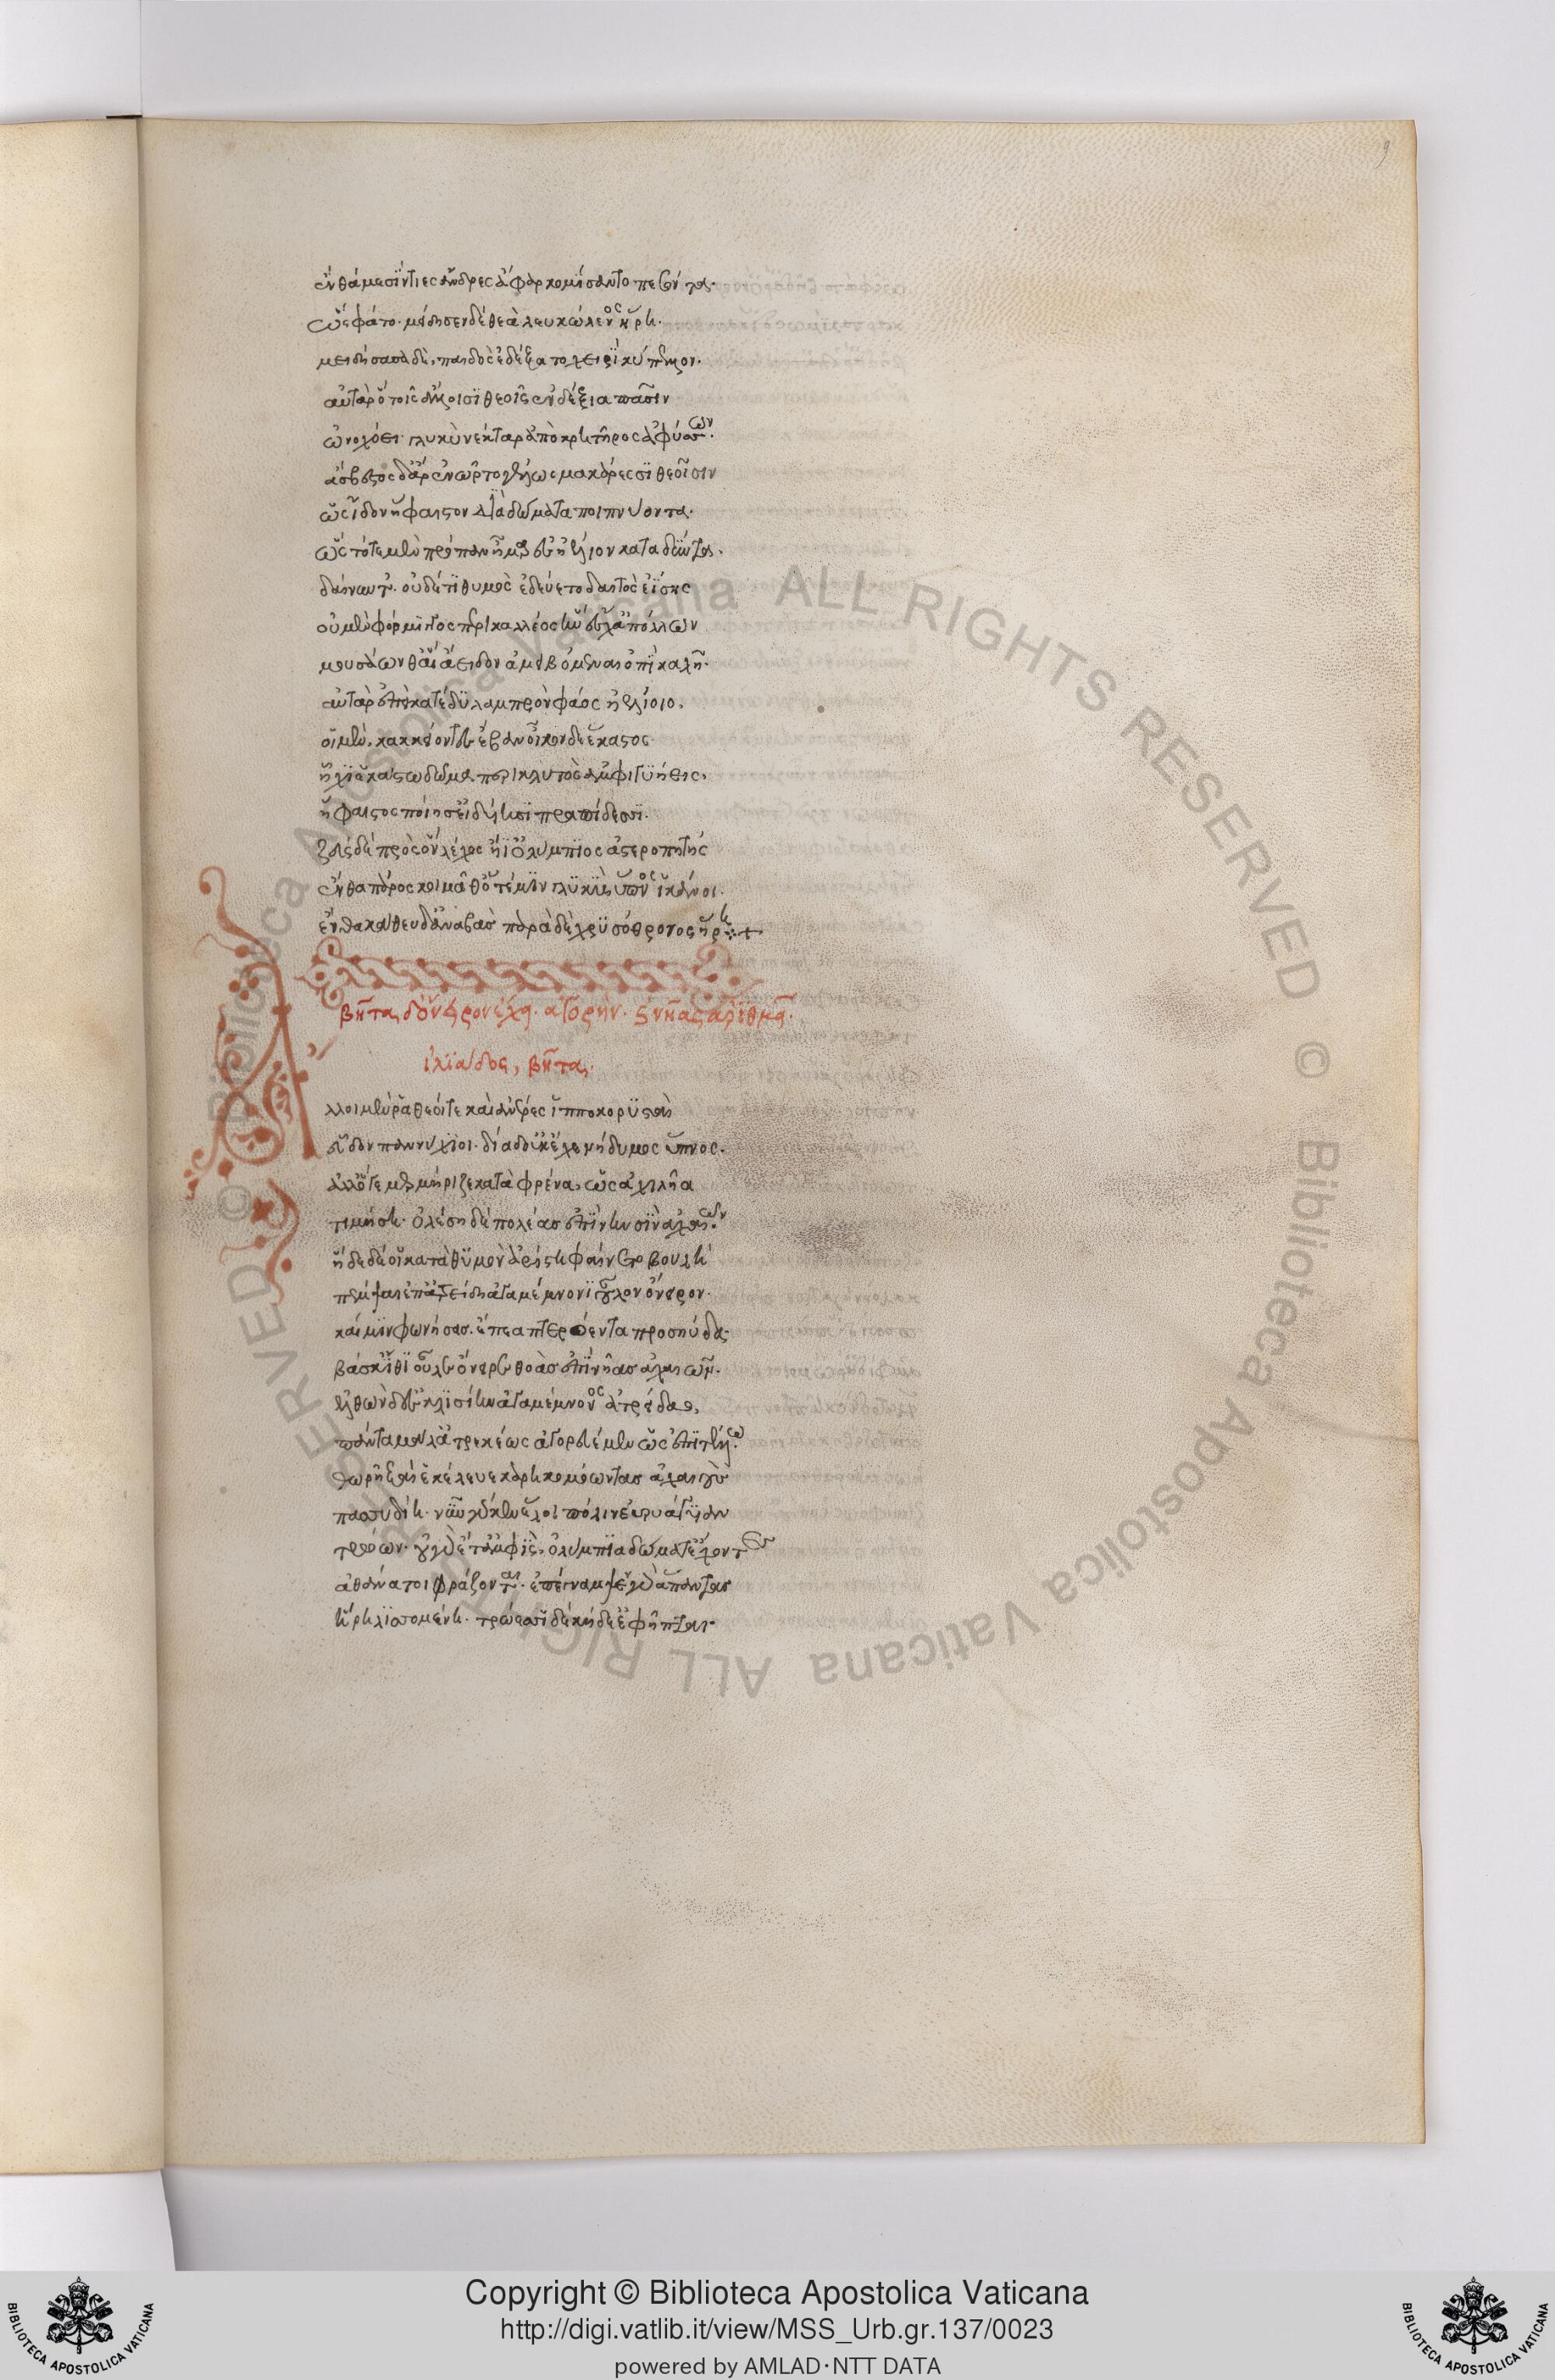 9
ἔνθά με σίντιες ἄνδρες ἄφαρ κομίσαντο πεσόντα.
ὣς φάτο. μείδησεν δὲ θεὰ λευκώλενος ἥρη.
μειδήσασα δὲ, παιδὸς ἐδέξατο χειρὶ κύπελλον.
αὐτὰρ ὃ τοῖς ἄλλοισι θεοῖς ἐνδέξια πᾶσιν
ὠνοχόει γλυκὺ νέκταρ ἀπὸ κρητῆρος ἀφύσσων.
ἄσβεστος δ' ἄρ ἐνῶρτο γέλως μακάρεσσι θεοῖσιν
ὡς ἴδον ἥφαιστον διὰ δώματα ποιπνύοντα.
ὣς τότε μὲν πρόπαν ἦμαρ ἐς ἠέλιον καταδύντα.
δαίνυντ. οὐδέ τι θυμὸς ἐδεύετο δαιτὸς ἐΐσης
οὐ μὲν φόρμιγγος περικαλλέος ἣν ἔχ' ἀπόλλων
μουσάων θ' αἳ ἄειδον ἀμειβόμεναι ὀπὶ καλῇ.
αὐτὰρ ἐπεὶ κατέδυ λαμπρὸν φάος ἠελίοιο,
οἱ μὲν, κακκείοντες ἔβαν οἶκον δὲ ἕκαστος
ἧχι ἑκάστω δῶμα περικλυτὸς ἀμφιγυήεις,
ἥφαιστος ποίησ' εἰδυίησι πραπίδεσσι.
ζεὺς δὲ πρὸς ὃν λέχος ἤϊ' ὀλύμπιος ἀστεροπητής
ἔνθα πάρος κοιμᾶθ' ὅτέ μιν γλυκὺς ὕπνος ἱκάνοι.
ἔνθα καθεῦδ' ἀναβὰς παρὰ δὲ χρυσόθρονος ἥρη
βῆτα δ' ὄνειρον ἔχει. ἀγορήν. καὶ νῆας ἀριθμεῖ.
ἰλιάδος, βῆτα.
Ἄλλοι μέν ῥα θεοί τε καὶ ἀνέρες ἱπποκορυσταὶ
εὗδον παννύχιοι. δία δ' οὐκ ἔχε νήδυμος ὕπνος.
ἀλλ' ὅ γε μερμήριζε κατὰ φρένα, ὡς ἀχιλῆα
τιμήση. ὀλέση δὲ πολέας ἐπὶ νηυσὶν ἀχαιῶν.
ἥδε δέ οἱ κατὰ θυμὸν ἀρίστη φαίνετο βουλή
πέμψαι ἐπ' ἀτρείδη ἀγαμέμνονι οὖλον ὄνειρον.
καί μιν φωνήσας. ἔπεα πτερόεντα προσηύδα.
βάσκ' ἴθι οὖλε ὄνειρε θοὰς ἐπὶ νῆας ἀχαιῶν.
ἐλθὼν ἐς κλισίην ἀγαμέμνονος ἀτρείδαο,
πάντα μάλ' ἀτρεκέως ἀγορευέμεν ὡς ἐπιτέλλω.
θωρῆξαί ἑ κέλευε κάρη κομόωντας ἀχαιοὺς
πασσυδίη. νῦν γάρ κεν ἕλοι πόλιν εὐρυάγυιαν
τρώων. οὐ γὰρ ἔτ' ἀμφὶς, ὀλύμπια δώματ' ἔχοντες
ἀθάνατοι φράζονται. ἐπέγναμψεν γὰρ ἅπαντας
ἥρη λισσομένη. τρώεσσι δὲ κήδε' ἐφῆπται.
Copyright © Biblioteca Apostolica Vaticana
http://digi.vatlib.it/view/MSS_Urb.gr.137/0023
powered by AMLAD·NTT DATA
BIBLIOTECA APOSTOLICA VATICANA
BIBLIOTECA APOSTOLICA VATICANA
© Biblioteca Apostolica Vaticana ALL RIGHTS RESERVED © Biblioteca Apostolica Vaticana ALL RIGHTS RESERVED